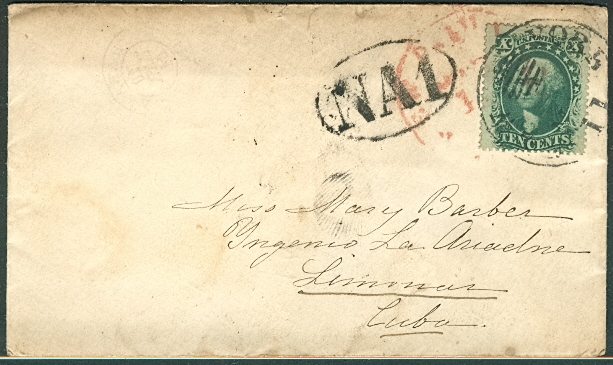 NA1
U.S. POSTAGE
TEN CENTS
Miss Mary Barber
Yngenio La Ariadne
Limonar
Cuba.